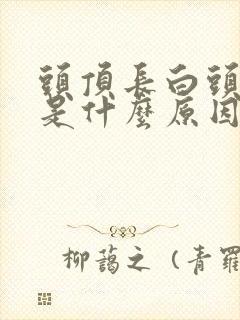 頭頂長白頭
是什麼原因
柳藹之（青羅